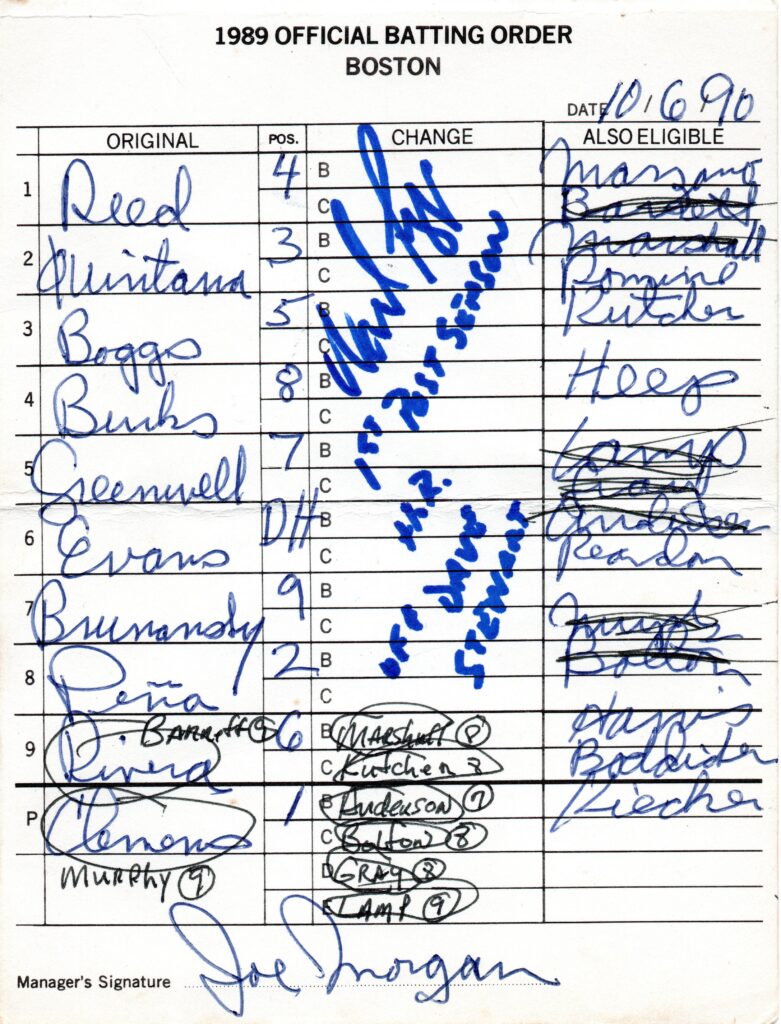 1989 OFFICIAL BATTING ORDER
BOSTON
DATE 10/6/90
ORIGINAL POS. CHANGE ALSO ELIGIBLE
1 Reed 4 B C Marzano
Barrett
2 Quintana 3 B C Marshall
Romine
3 Boggs 5 B C Kutcher
4 Burks 8 B C Heep
5 Greenwell 7 B C Lamp
Gray
6 Evans DH B C Andersen
Reardon
7 Brunansky 9 B C Murphy
8 Peña 2 B C Bolton
9 Rivera BARRETT 9 6 B MARSHALL 8 Harris
C Kutcher 8 Boddicker
P Clemens 1 B Anderson 7 Kiecker
C Bolton 8
MURPHY 9 D GRAY 8
E LAMP 9
1ST POST SEASON
H.R.
OFF DAVE
STEWART
Manager's Signature Joe Morgan